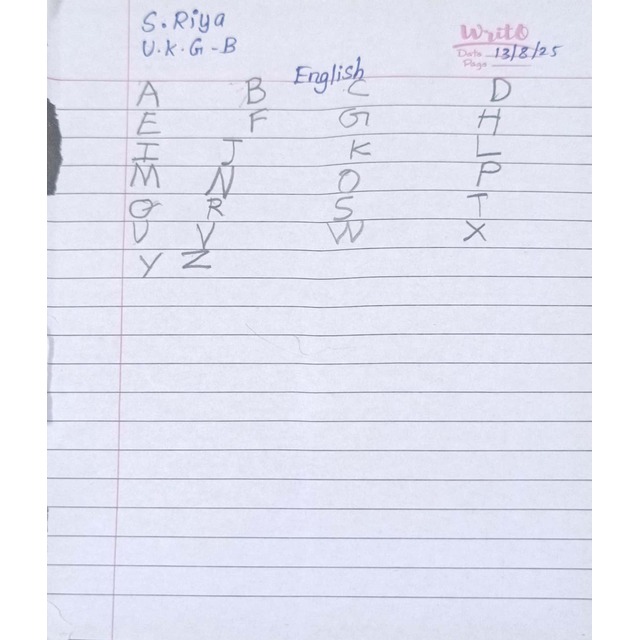 S. Riya
Write
U.K.G-B
Date 13/8/25
Page
English
A B C D
E F G H
I J K L
M N O P
Q R S T
U V W X
Y Z